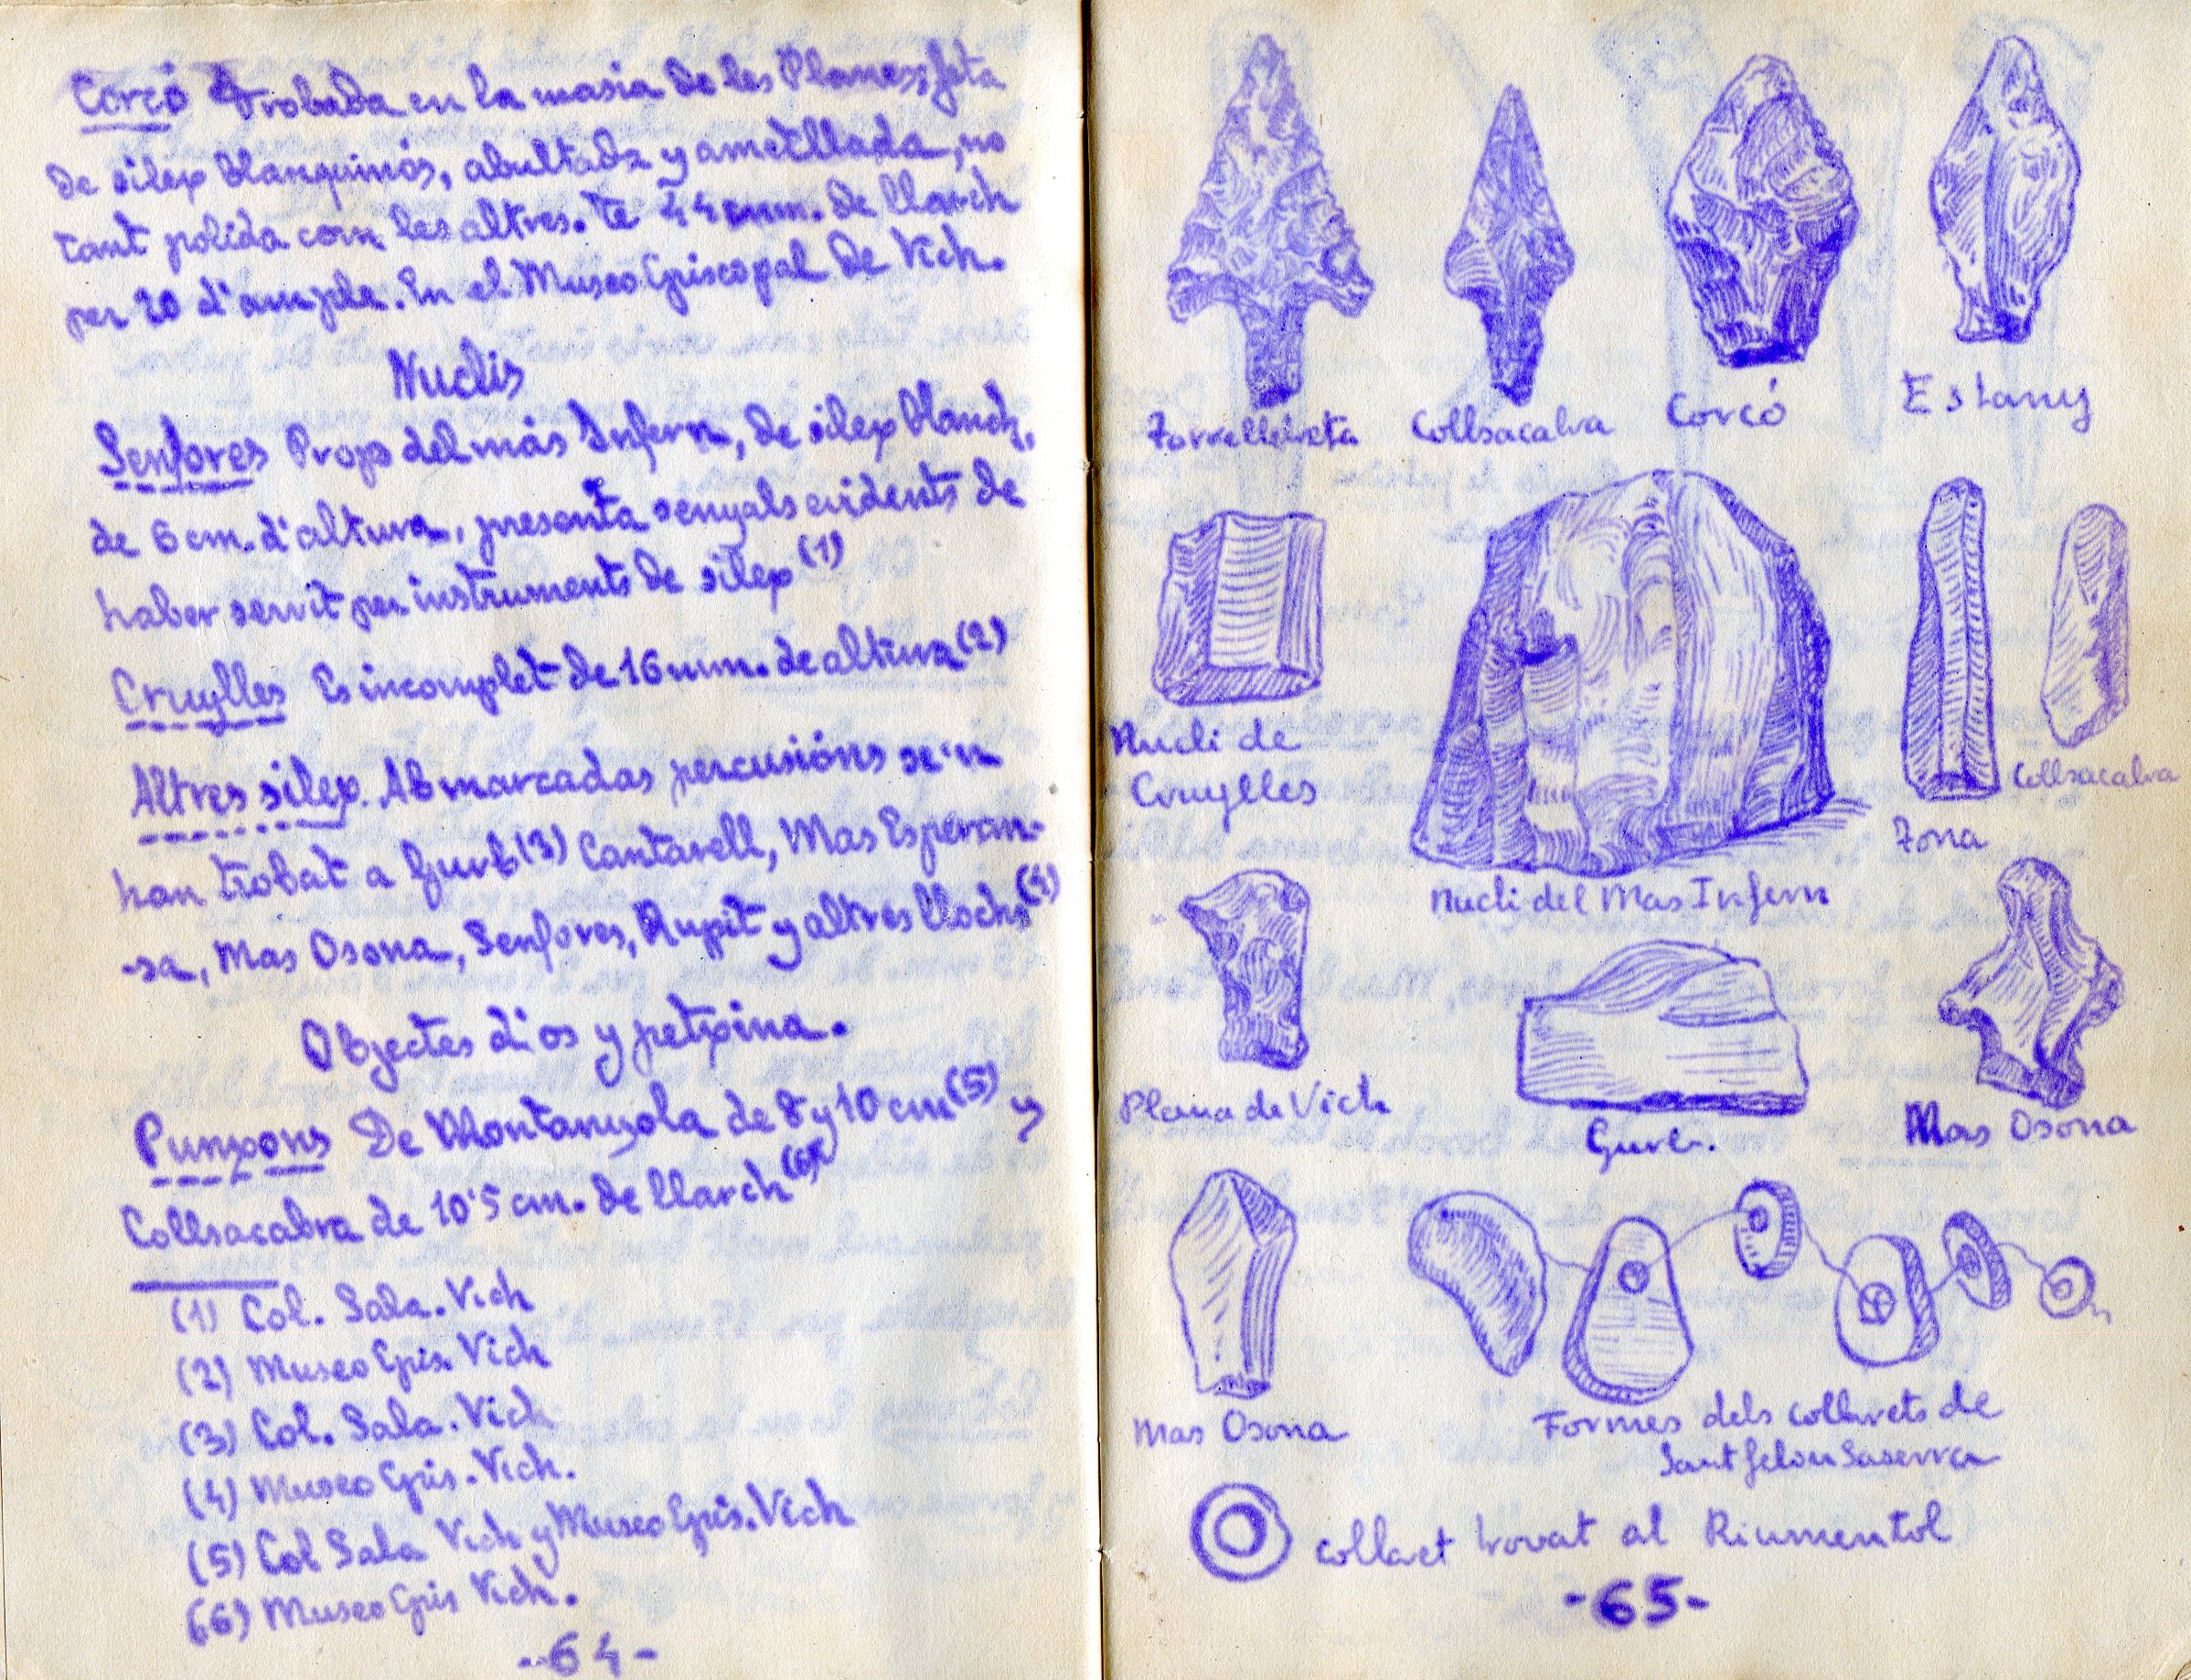 Corcó Trobada en la masia de les Planes; feta
de silex blanquinós, abultada y ametllada, no
tant polida com les altres. te 44 mm. de llarch
per 20 d'ample. En el Museo Episcopal de Vich.
Nuclis
Senfores Prop del más Infern, de silex blanch,
de 6 cm. d'altura, presenta senyals evidents de
haber servit per instruments de silex (1)
Cruylles Es incomplet de 16 mm. de altura (2)
Altres silex. Ab marcadas percusións se'n
han trobat a Gurb (3) Cantarell, Mas Esperan-
-sa, Mas Osona, Senfores, Rupit y altres llochs (4)
Objectes d'os y petxina.
Punxons De Montanyola de 8 y 10 cm (5) y
Collsacabra de 10'5 cm. de llarch (6)
(1) Col. Sala. Vich
(2) Museo Epis. Vich
(3) Col. Sala. Vich
(4) Museo Epis. Vich.
(5) Col Sala Vich y Museo Epis. Vich
(6) Museo Epis Vich.
-64-
Collsacabra
Corcó
Estany
Nucli de
Cruylles
Nucli del Mas Infern
Tona
Collsacabra
Plana de Vich
Gurb.
Mas Osona
Mas Osona
Formes dels collarets de
Sant Feliu Saserra
collaret trovat al Riumentol
-65-